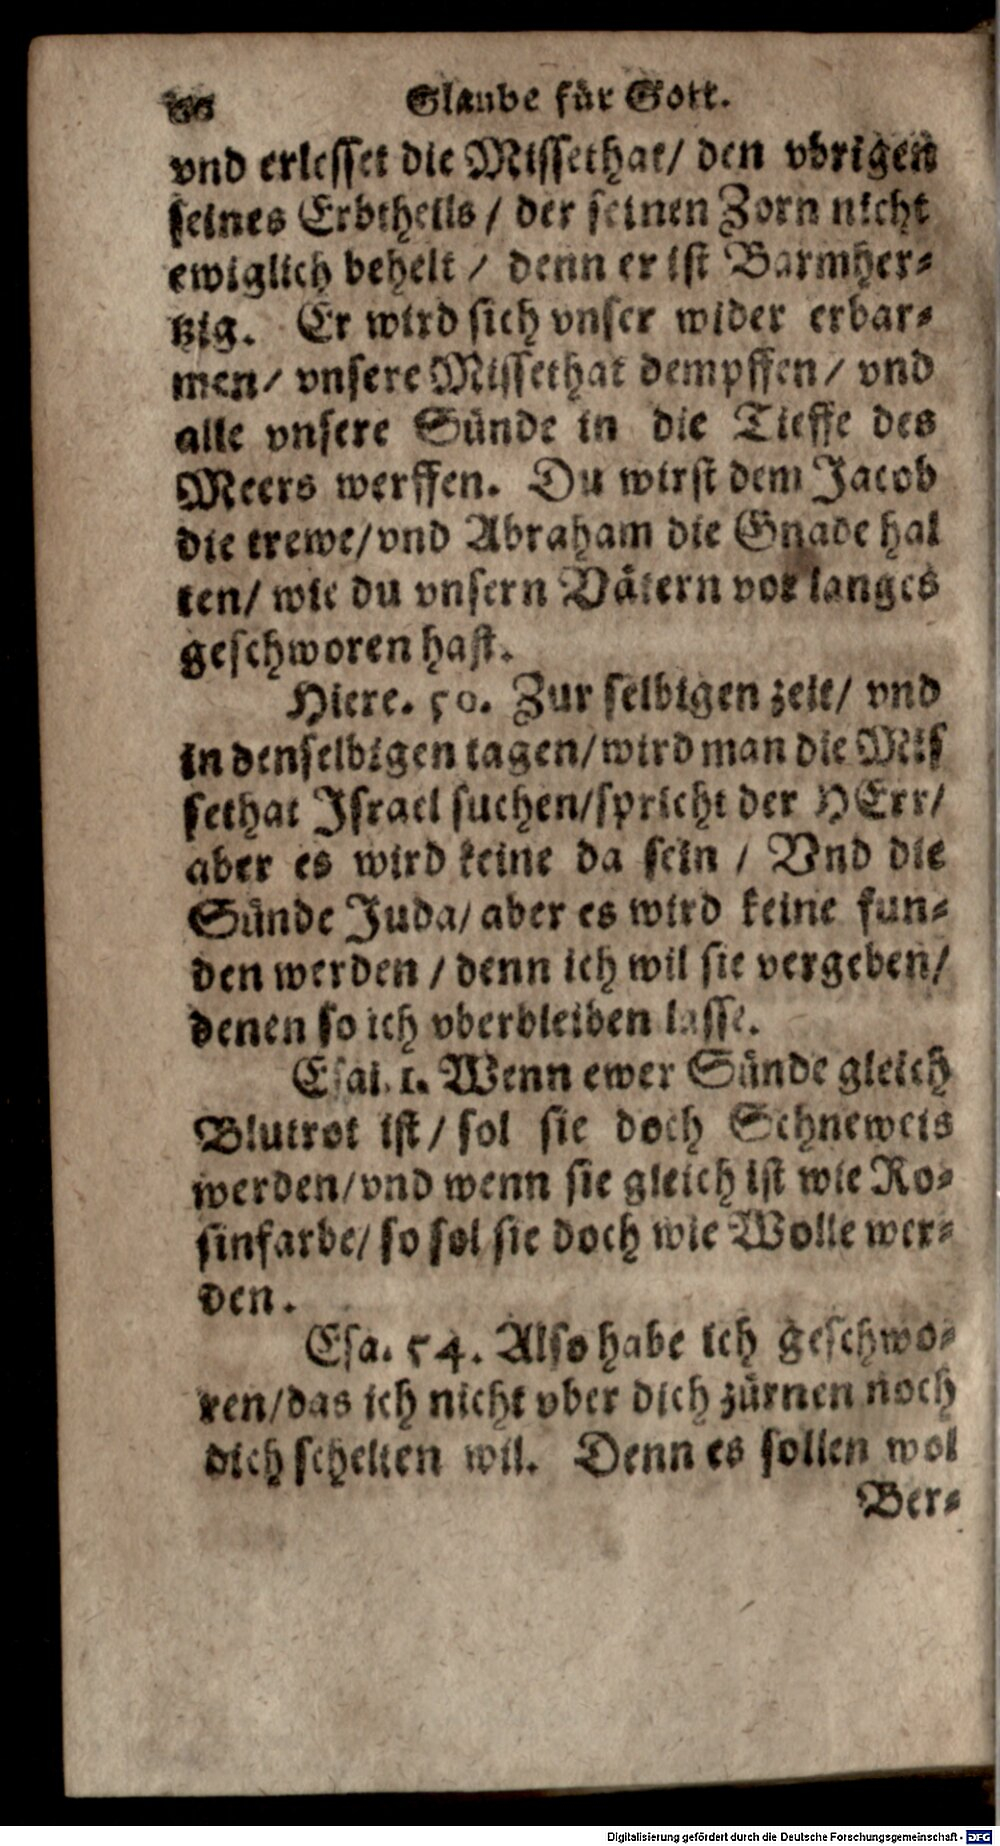 Glaube für Gott.
vnd erlesset die Missethat/ den vbrigen
seines Erbtheils / der seinen Zorn nicht
ewiglich behelt / denn er ist Barmher⸗
tzig. Er wird sich vnser wider erbar⸗
men/ vnsere Missethat dempffen/ vnd
alle vnsere Sünde in die Tieffe des
Meers werffen. Du wirst dem Jacob
die trewe/vnd Abraham die Gnade hal
ten/ wie du vnsern Vätern vor langes
geschworen hast.
Hiere. 50. Zur selbigen zeit/ vnd
in denselbigen tagen/wird man die Mis
sethat Israel suchen/spricht der HErr/
aber es wird keine da sein / Vnd die
Sünde Juda/ aber es wird keine fun⸗
den werden / denn ich wil sie vergeben/
denen so ich vberbleiben lasse.
Esai. 1. Wenn ewer Sünde gleich
Blutrot ist/ sol sie doch Schneweis
werden/vnd wenn sie gleich ist wie Ro⸗
sinfarbe/ so sol sie doch wie Wolle wer⸗
den.
Esa. 54. Also habe ich geschwo⸗
ren/das ich nicht vber dich zürnen noch
dich schelten wil. Denn es sollen wol
Ber⸗
Digitalisierung gefördert durch die Deutsche Forschungsgemeinschaft - DFG